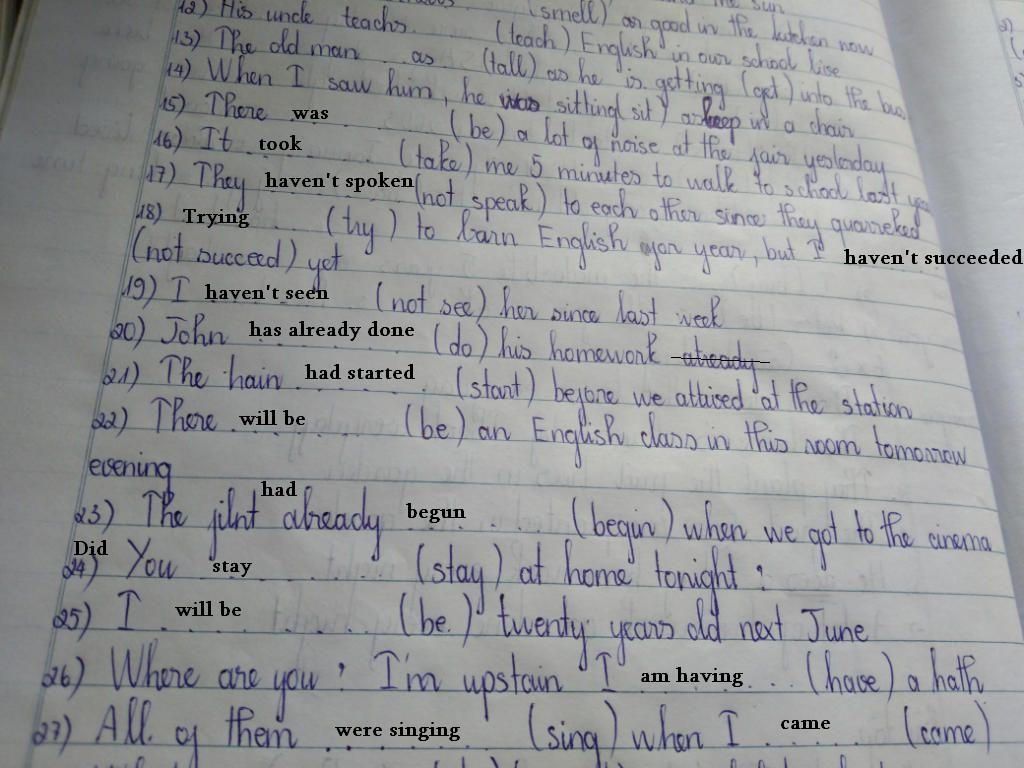 the sun
(smell) as good in the kitchen now
12) His uncle teachs. (teach) English in our school lise
13) The old man .. as (tall) as he is getting (get) into the bus
14) When I saw him, he was sitting (sit) asleep in a chair
15) There was (be) a lot of noise at the fair yesterday
16) It took (take) me 5 minutes to walk to school last year
17) They haven't spoken (not speak) to each other since they quarreked
18) Trying (try) to learn English for year, but I haven't succeeded
(not succeed) yet
19) I haven't seen (not see) her since last week
20) John has already done (do) his homework already
21) The train had started (start) before we attised at the station
22) There will be (be) an English class in this room tomorrow
evening
had
23) The jilnt already begun (begin) when we got to the cinema
Did
24) You stay (stay) at home tonight ?
25) I will be (be.) twenty years old next June
26) Where are you ? I'm upstain I am having (have) a bath
27) All of them were singing (sing) when I came (came)